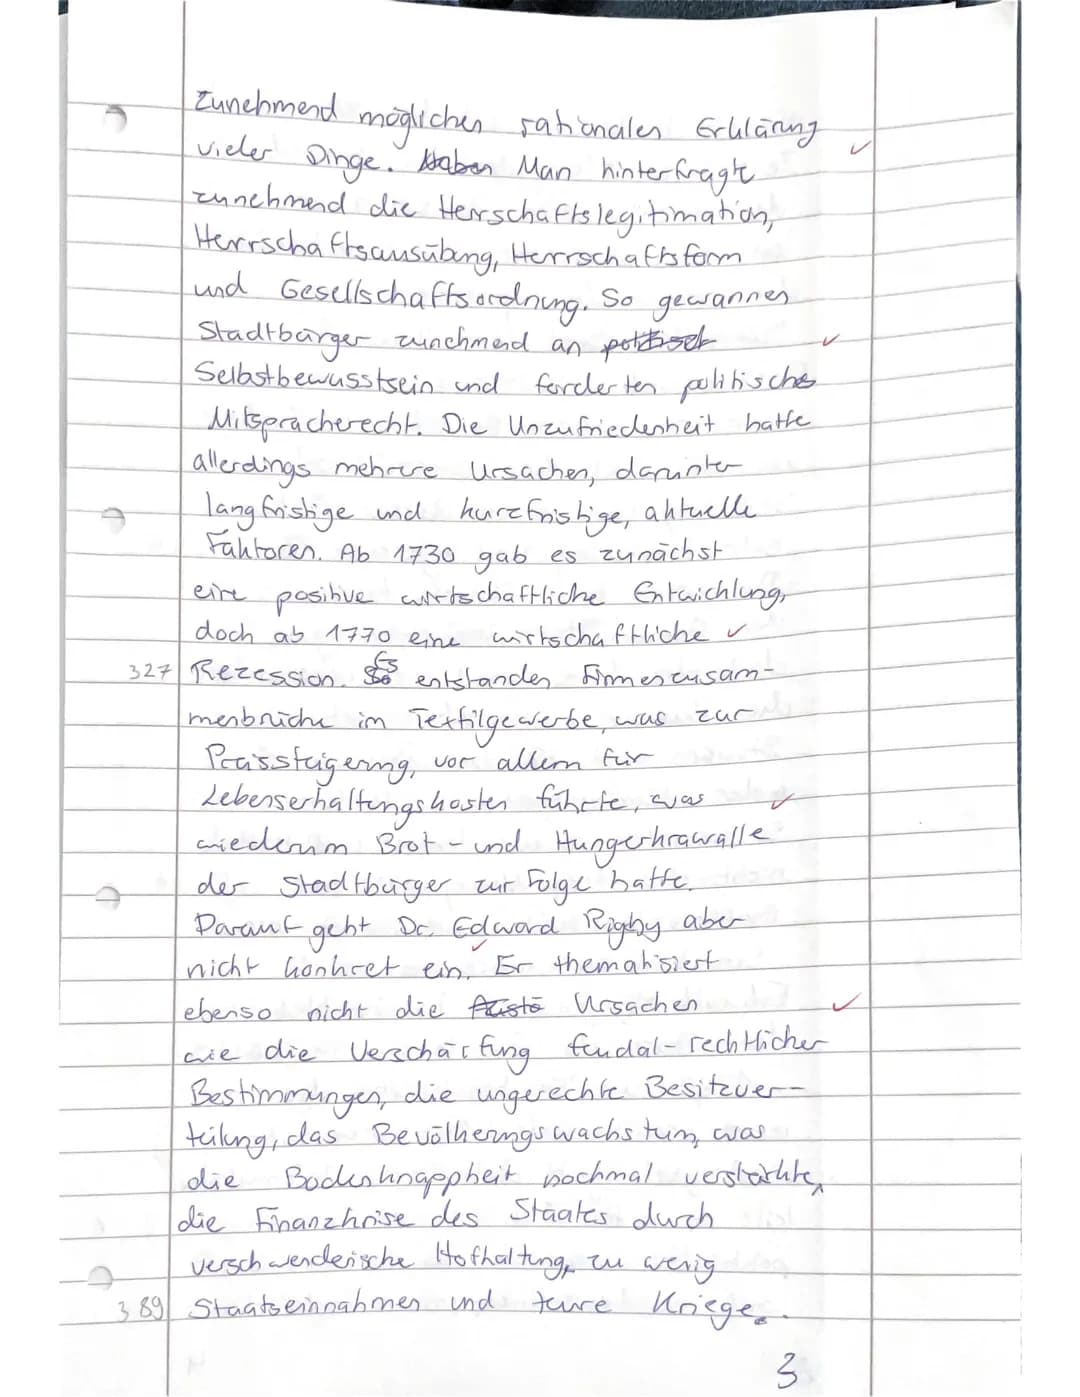 Zunehmend möglichen rationalen Erklärung
vieler Dinge. Haben Man hinterfragt
zunehmend die Herrschaftslegitimation,
Herrschaftsausübung, Herrschaftsform
und Gesellschaftsordnung. So gewannen
Stadtbürger zunehmend an politisch
Selbstbewusstsein und forderten politisches
Mitspracherecht. Die Unzufriedenheit hatte
allerdings mehrere Ursachen, darunter
langfristige und kurzfristige, aktuelle
Faktoren. Ab 1730 gab es zunächst
eine positive wirtschaftliche Entwicklung,
doch ab 1770 eine wirtschaftliche
327 Rezession. So Es entstanden Firmenzusam-
menbrüche im Textilgewerbe, was zur
Preissteigerung, vor allem für
Lebenserhaltungskosten führte, was
wiederum Brot- und Hungerkrawalle
der Stadtbürger zur Folge hatte.
Darauf geht Dr. Edward Rigby aber
nicht konkret ein. Er thematisiert
ebenso nicht die Ursachen
wie die Verschärfung feudal-rechtlicher
Bestimmungen, die ungerechte Besitzver-
teilung, das Bevölkerungswachstum, was
die Bodenknappheit nochmal verstärkte,
die Finanzkrise des Staates durch
verschwenderische Hofhaltung, zu wenig
389 Staatseinnahmen und teure Kriege.
3